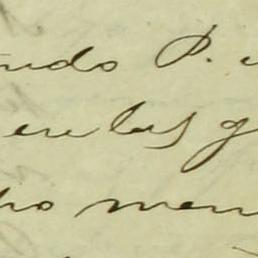 ndo P.
en las g
ho men